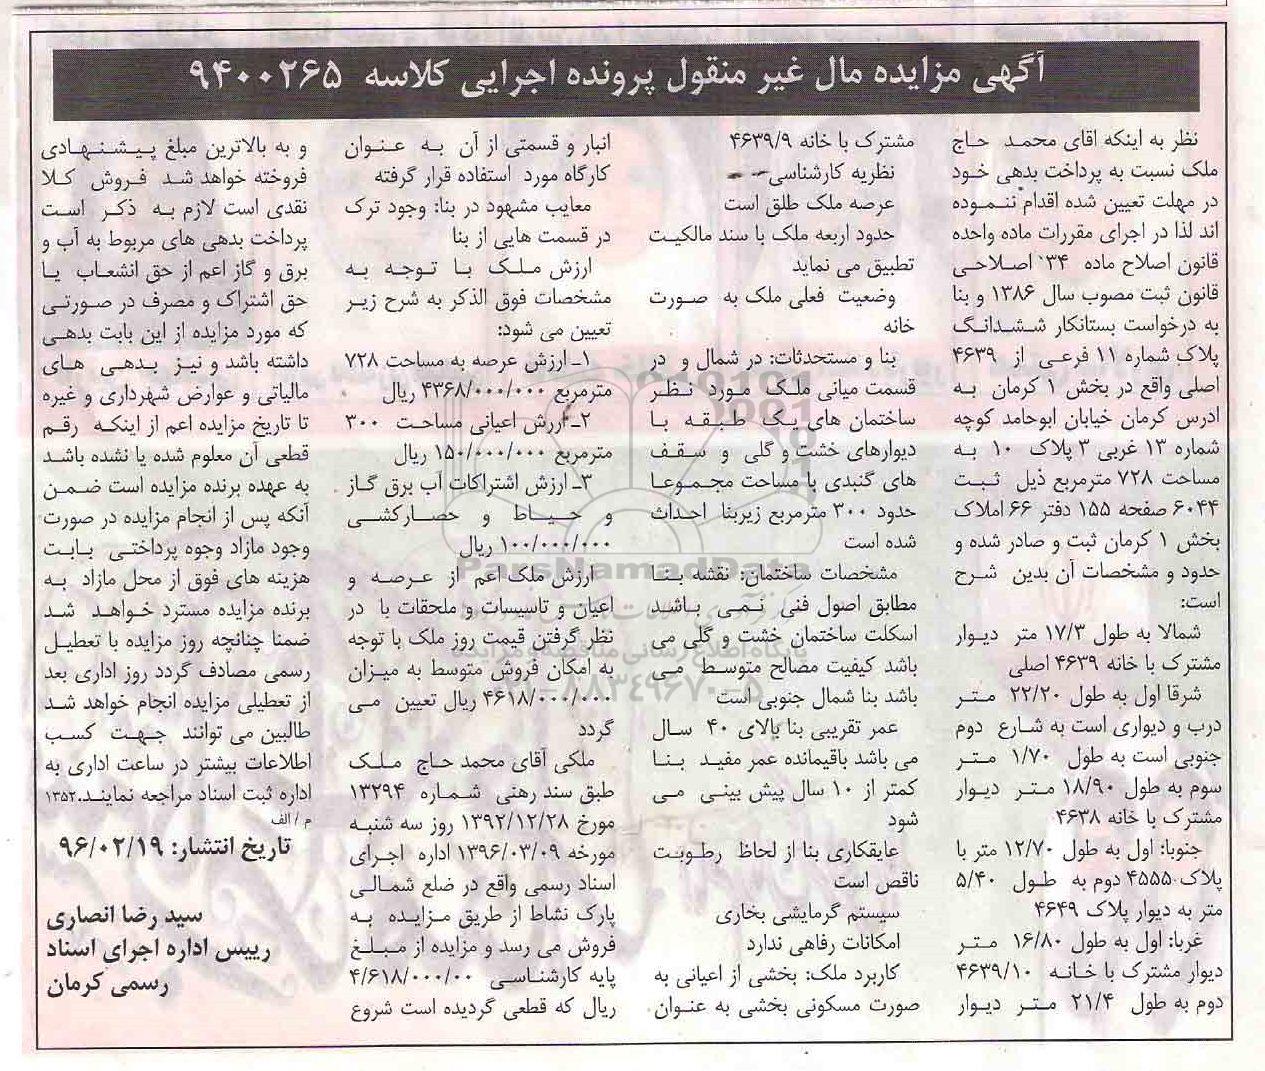 آگهی مزایده مال غیر منقول پرونده اجرایی کلاسه ۹۴۰۰۲۶۵
نظر به اینکه اقای محمد حاج
ملک نسبت به پرداخت بدهی خود
در مهلت تعیین شده اقدام ننموده
اند لذا در اجرای مقررات ماده واحده
قانون اصلاح ماده ۳۴ اصلاحی
قانون ثبت مصوب سال ۱۳۸۶ و بنا
به درخواست بستانکار ششدانگ
پلاک شماره ۱۱ فرعی از ۴۶۳۹
اصلی واقع در بخش ۱ کرمان به
ادرس کرمان خیابان ابوحامد کوچه
شماره ۱۳ غربی ۳ پلاک ۱۰ به
مساحت ۷۲۸ مترمربع ذیل ثبت
۶۰۴۴ صفحه ۱۵۵ دفتر ۶۶ املاک
بخش ۱ کرمان ثبت و صادر شده و
حدود و مشخصات آن بدین شرح
است:
شمالا به طول ۱۷/۳ متر دیوار
مشترک با خانه ۴۶۳۹ اصلی
شرقا اول به طول ۲۲/۲۰ متر
درب و دیواری است به شارع دوم
جنوبی است به طول ۱/۷۰ متر
سوم به طول ۱۸/۹۰ متر دیوار
مشترک با خانه ۴۶۳۸
جنوبا: اول به طول ۱۲/۷۰ متر با
پلاک ۴۵۵۵ دوم به طول ۵/۴۰
متر به دیوار پلاک ۴۶۴۹
غربا: اول به طول ۱۶/۸۰ متر
دیوار مشترک با خانه ۴۶۳۹/۱۰
دوم به طول ۲۱/۴ متر دیوار
مشترک با خانه ۴۶۳۹/۹
نظریه کارشناسی
عرصه ملک طلق است
حدود اربعه ملک با سند مالکیت
تطبیق می نماید
وضعیت فعلی ملک به صورت
خانه
بنا و مستحدثات: در شمال و در
قسمت میانی ملک مورد نظر
ساختمان های یک طبقه با
دیوارهای خشت و گلی و سقف
های گنبدی با مساحت مجموعا
حدود ۳۰۰ مترمربع زیربنا احداث
شده است
مشخصات ساختمان: نقشه بنا
مطابق اصول فنی نمی باشد
اسکلت ساختمان خشت و گلی می
باشد کیفیت مصالح متوسط می
باشد بنا شمال جنوبی است
عمر تقریبی بنا بالای ۴۰ سال
می باشد باقیمانده عمر مفید بنا
کمتر از ۱۰ سال پیش بینی می
شود
عایقکاری بنا از لحاظ رطوبت
ناقص است
سیستم گرمایشی بخاری
امکانات رفاهی ندارد
کاربرد ملک: بخشی از اعیانی به
صورت مسکونی بخشی به عنوان
انبار و قسمتی از آن به عنوان
کارگاه مورد استفاده قرار گرفته
معایب مشهود در بنا: وجود ترک
در قسمت هایی از بنا
ارزش ملک با توجه به
مشخصات فوق الذکر به شرح زیر
تعیین می شود:
۱ـ ارزش عرصه به مساحت ۷۲۸
مترمربع ۴۳۶۸/۰۰۰/۰۰۰ ریال
۲ـ ارزش اعیانی مساحت ۳۰۰
مترمربع ۱۵۰/۰۰۰/۰۰۰ ریال
۳ـ ارزش اشتراکات آب برق گاز
و حیاط و حصارکشی
۱۰۰/۰۰۰/۰۰۰ ریال
ارزش ملک اعم از عرصه و
اعیان و تاسیسات و ملحقات با در
نظر گرفتن قیمت روز ملک با توجه
به امکان فروش متوسط به میزان
۴۶۱۸/۰۰۰/۰۰۰ ریال تعیین می
گردد
ملکی آقای محمد حاج ملک
طبق سند رهنی شماره ۱۳۲۹۴
مورخ ۱۳۹۲/۱۲/۲۸ روز سه شنبه
مورخه ۱۳۹۶/۰۳/۰۹ اداره اجرای
اسناد رسمی واقع در ضلع شمالی
پارک نشاط از طریق مزایده به
فروش می رسد و مزایده از مبلغ
پایه کارشناسی ۴/۶۱۸/۰۰۰/۰۰
ریال که قطعی گردیده است شروع
و به بالاترین مبلغ پیشنهادی
فروخته خواهد شد فروش کلا
نقدی است لازم به ذکر است
پرداخت بدهی های مربوط به آب و
برق و گاز اعم از حق انشعاب یا
حق اشتراک و مصرف در صورتی
که مورد مزایده از این بابت بدهی
داشته باشد و نیز بدهی های
مالیاتی و عوارض شهرداری و غیره
تا تاریخ مزایده اعم از اینکه رقم
قطعی آن معلوم شده یا نشده باشد
به عهده برنده مزایده است ضمن
آنکه پس از انجام مزایده در صورت
وجود مازاد وجوه پرداختی بابت
هزینه های فوق از محل مازاد به
برنده مزایده مسترد خواهد شد
ضمنا چنانچه روز مزایده با تعطیل
رسمی مصادف گردد روز اداری بعد
از تعطیلی مزایده انجام خواهد شد
طالبین می توانند جهت کسب
اطلاعات بیشتر در ساعت اداری به
اداره ثبت اسناد مراجعه نمایند.۱۳۵۲
م / الف
تاریخ انتشار: ۹۶/۰۲/۱۹
سید رضا انصاری
رییس اداره اجرای اسناد
رسمی کرمان
ParsNamadData
۰۲۱-۸۸۳۴۹۶۷۰-۵